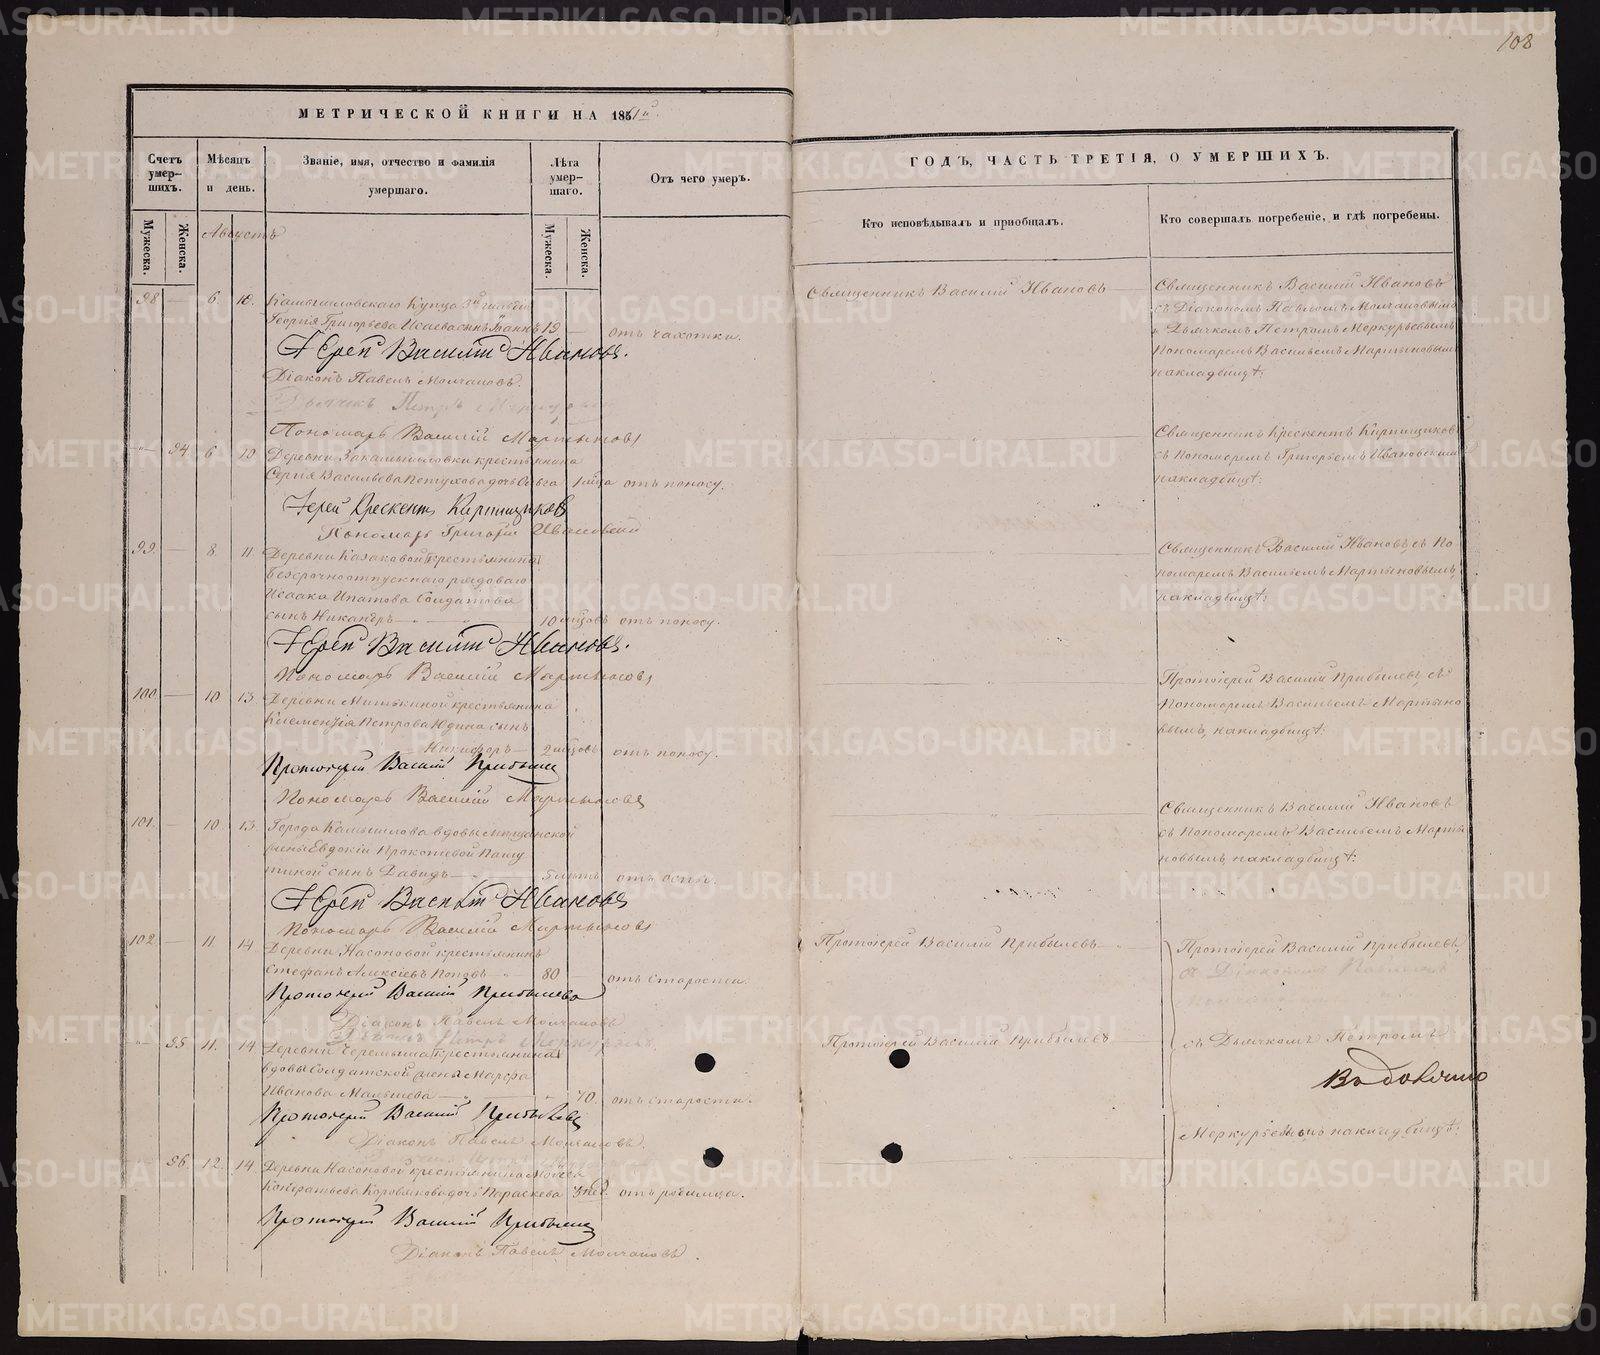 108
МЕТРИЧЕСКОЙ КНИГИ НА 1861й
ГОДЪ, ЧАСТЬ ТРЕТІЯ, О УМЕРШИХЪ.
Счетъ умер-шихъ.
Мѣсяцъ и день.
Званіе, имя, отчество и фамилія умершаго.
Лѣта умер-шаго.
Отъ чего умеръ.
Кто исповѣдывалъ и пріобщалъ.
Кто совершалъ погребеніе, и гдѣ погребены.
Мужеска.
Женска.
Августъ
Мужеска.
Женска.
98 — 6. 10. Камышловскаго Купца 3й гильдіи
Георгія Григорьева Исаева сынъ Іоаннъ 19 — отъ чахотки.
Іерей Василій Ивановъ.
Діаконъ Павелъ Молчановъ.
Дьячекъ Петръ
Пономарь Василій Мартыновъ
Священникъ Василій Ивановъ
Священникъ Василій Ивановъ
съ Діакономъ Павломъ Молчановымъ
и Дьячкомъ Петромъ Меркурьевымъ
Пономаремъ Васильемъ Мартыновымъ
на кладбищѣ.
— 94 6 10 Деревни Закамышловки крестьянина
Сергія Васильева Петухова дочь Ольга 1 мѣс. отъ поносу.
Іерей Крескентъ Кирпищиковъ
Пономарь Григорій Ивановскій
Священникъ Крескентъ Кирпищиковъ
съ Пономаремъ Григорьемъ Ивановскимъ
на кладбищѣ.
99. — 8. 11 Деревни Казаковой крестьянина
безсрочноотпускнаго рядоваго
Исаака Ипатова Солдатова
сынъ Никандръ — 10 мѣсцовъ отъ поносу.
Іерей Василій Ивановъ.
Пономарь Василій Мартыновъ
Священникъ Василій Ивановъ, съ По
номаремъ Васильемъ Мартыновымъ,
на кладбищѣ.
100 — 10 13 Деревни Митькиной крестьянина
Климентія Петрова Юдина сынъ
Никифоръ — 2 мѣсцовъ отъ поносу.
Протоіерей Василій Прибылевъ
Пономарь Василій Мартыновъ
Протоіерей Василій Прибылевъ, съ
Пономаремъ Васильемъ Мартыно
вымъ, на кладбищѣ.
101. — 10. 13. Города Камышлова вдовы мѣщанской
жены Евдокіи Прокопіевой Пашу
тиной сынъ Давидъ — 5 лѣтъ отъ оспы.
Іерей Василій Ивановъ
Пономарь Василій Мартыновъ
Священникъ Василій Ивановъ
съ Пономаремъ Васильемъ Марты
новымъ, на кладбищѣ.
102. — 11. 14 Деревни Насоновой крестьянинъ
Стефанъ Алексіевъ Поповъ — 80 — отъ старости.
Протоіерей Василій Прибылевъ
Діаконъ Павелъ Молчановъ
Дьячекъ Петръ Меркурьевъ.
Протоіерей Василій Прибылевъ
Протоіерей Василій Прибылевъ,
съ Діакономъ Павломъ
— 95 11. 14 Деревни Черемыша крестьянина
вдовы солдатской жены Марфа
Иванова Малышева — 70. отъ старости.
Протоіерей Василій Прибылевъ
Діаконъ Павелъ Молчановъ.
Протоіерей Василій Прибылевъ
съ Дьячкомъ Петромъ
Меркурьевымъ на кладбищѣ.
96. 12. 14 Деревни Насоновой крестьянина Моисея
Кондратьева Коровякова дочь Параскева 3 нед. отъ родимца.
Протоіерей Василій Прибылевъ
Діаконъ Павелъ Молчановъ.
METRIKI.GASO-URAL.RU